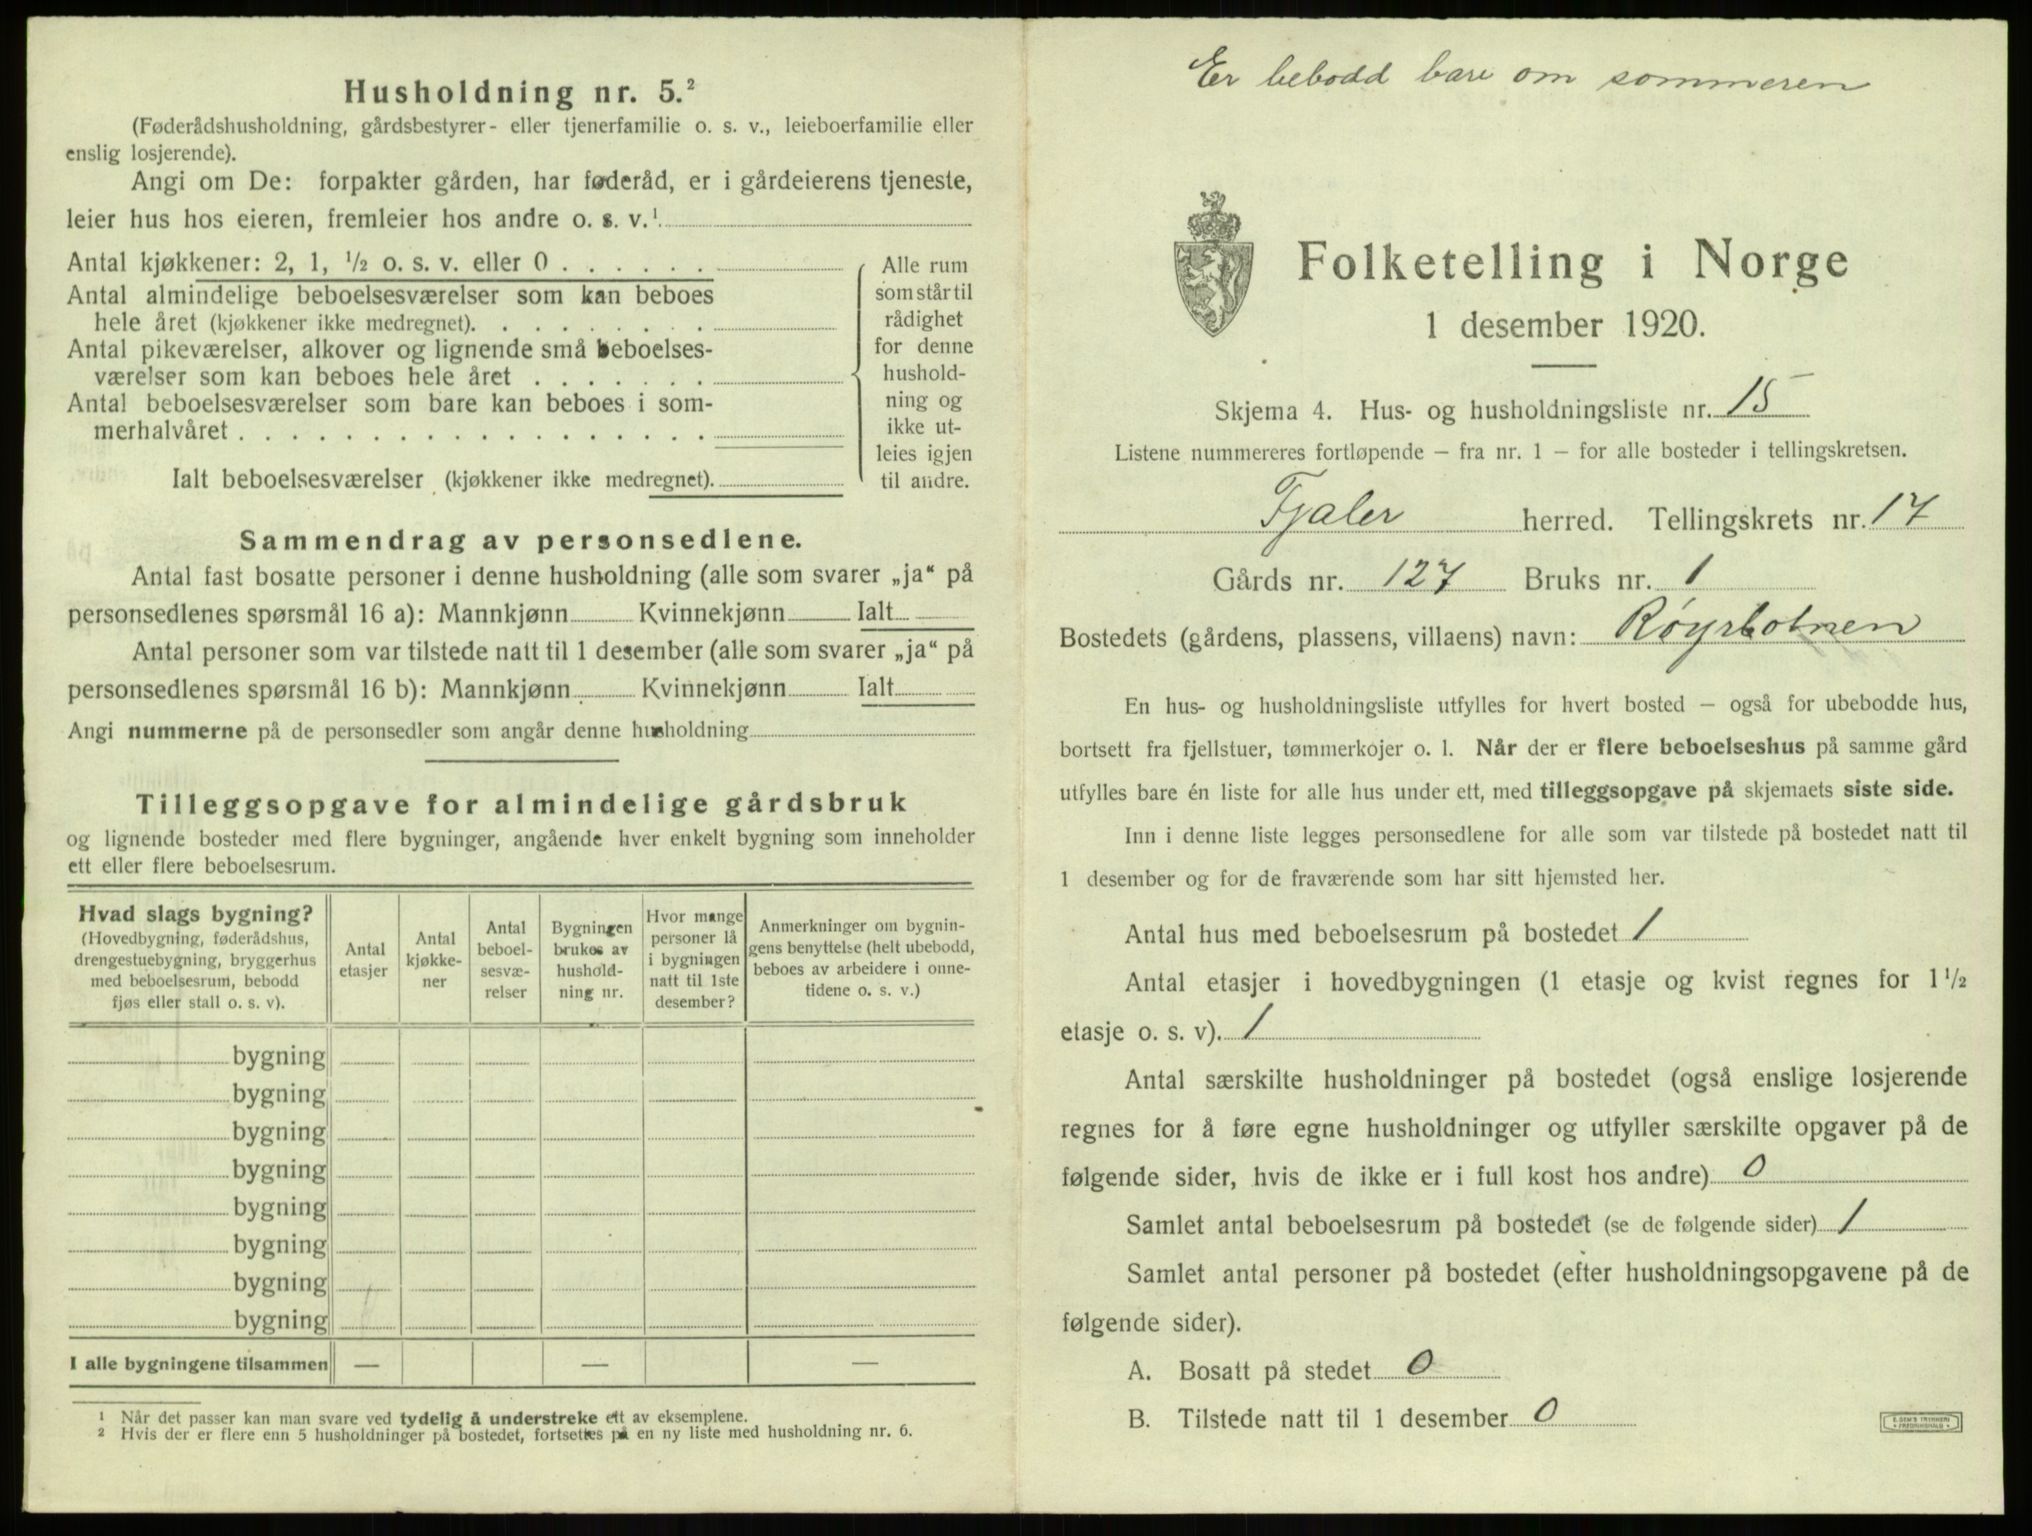 Husholdning nr. 5.²
(Føderådshusholdning, gårdsbestyrer- eller tjenerfamilie o. s. v., leieboerfamilie eller
enslig losjerende).
Angi om De: forpakter gården, har føderåd, er i gårdeierens tjeneste,
leier hus hos eieren, fremleier hos andre o. s. v.¹
Antal kjøkkener: 2, 1, ½ o. s. v. eller 0 . . . . . .
Antal almindelige beboelsesværelser som kan beboes
hele året (kjøkkener ikke medregnet). . . . . . . . .
Antal pikeværelser, alkover og lignende små beboelses-
værelser som kan beboes hele året . . . . . . .
Antal beboelsesværelser som bare kan beboes i som-
merhalvåret . . . . . . . . . . . . . . . . . .
Ialt beboelsesværelser (kjøkkener ikke medregnet).
Alle rum
som står til
rådighet
for denne
hushold-
ning og
ikke ut-
leies igjen
til andre.
Sammendrag av personsedlene.
Antal fast bosatte personer i denne husholdning (alle som svarer „ja“ på
personsedlenes spørsmål 16 a): Mannkjønn Kvinnekjønn Ialt
Antal personer som var tilstede natt til 1 desember (alle som svarer „ja“ på
personsedlenes spørsmål 16 b): Mannkjønn Kvinnekjønn Ialt
Angi nummerne på de personsedler som angår denne husholdning
Tilleggsopgave for almindelige gårdsbruk
og lignende bosteder med flere bygninger, angående hver enkelt bygning som inneholder
ett eller flere beboelsesrum.
Hvad slags bygning?
(Hovedbygning, føderådshus,
drengestuebygning, bryggerhus
med beboelsesrum, bebodd
fjøs eller stall o. s. v).
Antal
etasjer
Antal
kjøkke-
ner
Antal
beboel-
sesvæ-
relser
Bygningen
brukes av
hushold-
ning nr.
Hvor mange
personer lå
i bygningen
natt til 1ste
desember?
Anmerkninger om bygnin-
gens benyttelse (helt ubebodd,
beboes av arbeidere i onne-
tidene o. s. v.)
bygning
bygning
bygning
bygning
bygning
bygning
bygning
bygning
I alle bygningene tilsammen — — —
¹ Når det passer kan man svare ved tydelig å understreke ett av eksemplene.
² Hvis der er flere enn 5 husholdninger på bostedet, fortsettes på en ny liste med husholdning nr. 6.
Er bebodd bare om sommeren
Folketelling i Norge
1 desember 1920.
Skjema 4. Hus- og husholdningsliste nr. 15
Listene nummereres fortløpende — fra nr. 1 — for alle bosteder i tellingskretsen.
Fjaler herred. Tellingskrets nr. 17
Gårds nr. 127 Bruks nr. 1
Bostedets (gårdens, plassens, villaens) navn: Røyrbotnen
En hus- og husholdningsliste utfylles for hvert bosted — også for ubebodde hus,
bortsett fra fjellstuer, tømmerkojer o. l. Når der er flere beboelseshus på samme gård
utfylles bare én liste for alle hus under ett, med tilleggsopgave på skjemaets siste side.
Inn i denne liste legges personsedlene for alle som var tilstede på bostedet natt til
1 desember og for de fraværende som har sitt hjemsted her.
Antal hus med beboelsesrum på bostedet 1
Antal etasjer i hovedbygningen (1 etasje og kvist regnes for 1½
etasje o. s. v). 1
Antal særskilte husholdninger på bostedet (også enslige losjerende
regnes for å føre egne husholdninger og utfyller særskilte opgaver på de
følgende sider, hvis de ikke er i full kost hos andre) 0
Samlet antal beboelsesrum på bostedet (se de følgende sider) 1
Samlet antal personer på bostedet (efter husholdningsopgavene på de
følgende sider).
A. Bosatt på stedet 0
B. Tilstede natt til 1 desember 0